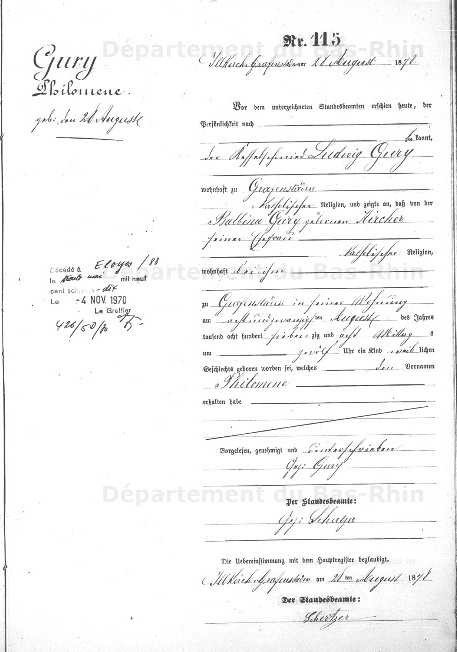 Département du Bas-Rhin
Nr. 115
Gury
Philomene.
geb. den 28 August
Illkirch-Grafenstaden am 28 August 1878
Vor dem unterzeichneten Standesbeamten erschien heute, der
Persönlichkeit nach
bekannt,
der Kesselschmied Ludwig Gury
wohnhaft zu Grafenstaden
katholischer Religion, und zeigte an, daß von der
Balbina Gury geborenen Kircher
seiner Ehefrau
katholischer Religion,
wohnhaft bei ihm
zu Grafenstaden in seiner Wohnung
am achtundzwanzigsten August des Jahres
tausend acht hundert siebenzig und acht Mittags
um zwölf Uhr ein Kind weiblichen
Geschlechts geboren worden sei, welches den Vornamen
Philomene
erhalten habe
Décédé à Eloyes /88
le mai mil neuf
cent soixante-dix
Le -4 NOV. 1970
Le Greffier
426/50/70
Vorgelesen, genehmigt und unterschrieben
Gez: Gury
Département du Bas-Rhin
Der Standesbeamte:
Gez: Schertzer
Die Uebereinstimmung mit dem Hauptregister beglaubigt.
Illkirch-Grafenstaden am 28ten August 1878
Der Standesbeamte:
Schertzer